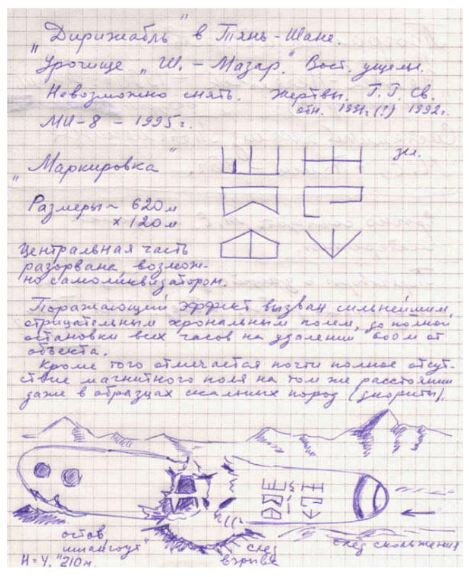 „Дирижабль" в Тянь-Шане.
Урочище „Ш.-Мазар." Вост. ущелье.
Невозможно снять. Жертвы. Г.Г. Св.
отн. 1991г.(?) 1992г.
МИ-8 - 1995г.
„Маркировка"
зел.
Размеры ~ 620м
x 120м
Центральная часть
разорвана, возмож-
но самоликвидатором.
Поражающий эффект вызван сильнейшим,
отрицательным хрональным полем, до полной
остановки всех часов на удалении 600м от
объекта.
Кроме того отмечается почти полное отсут-
ствие магнитного поля на том же расстоянии
даже в образцах скальных пород (диориты).
остов
„шпангоут"
H = 4.210м
след
взрыва
след скольжения